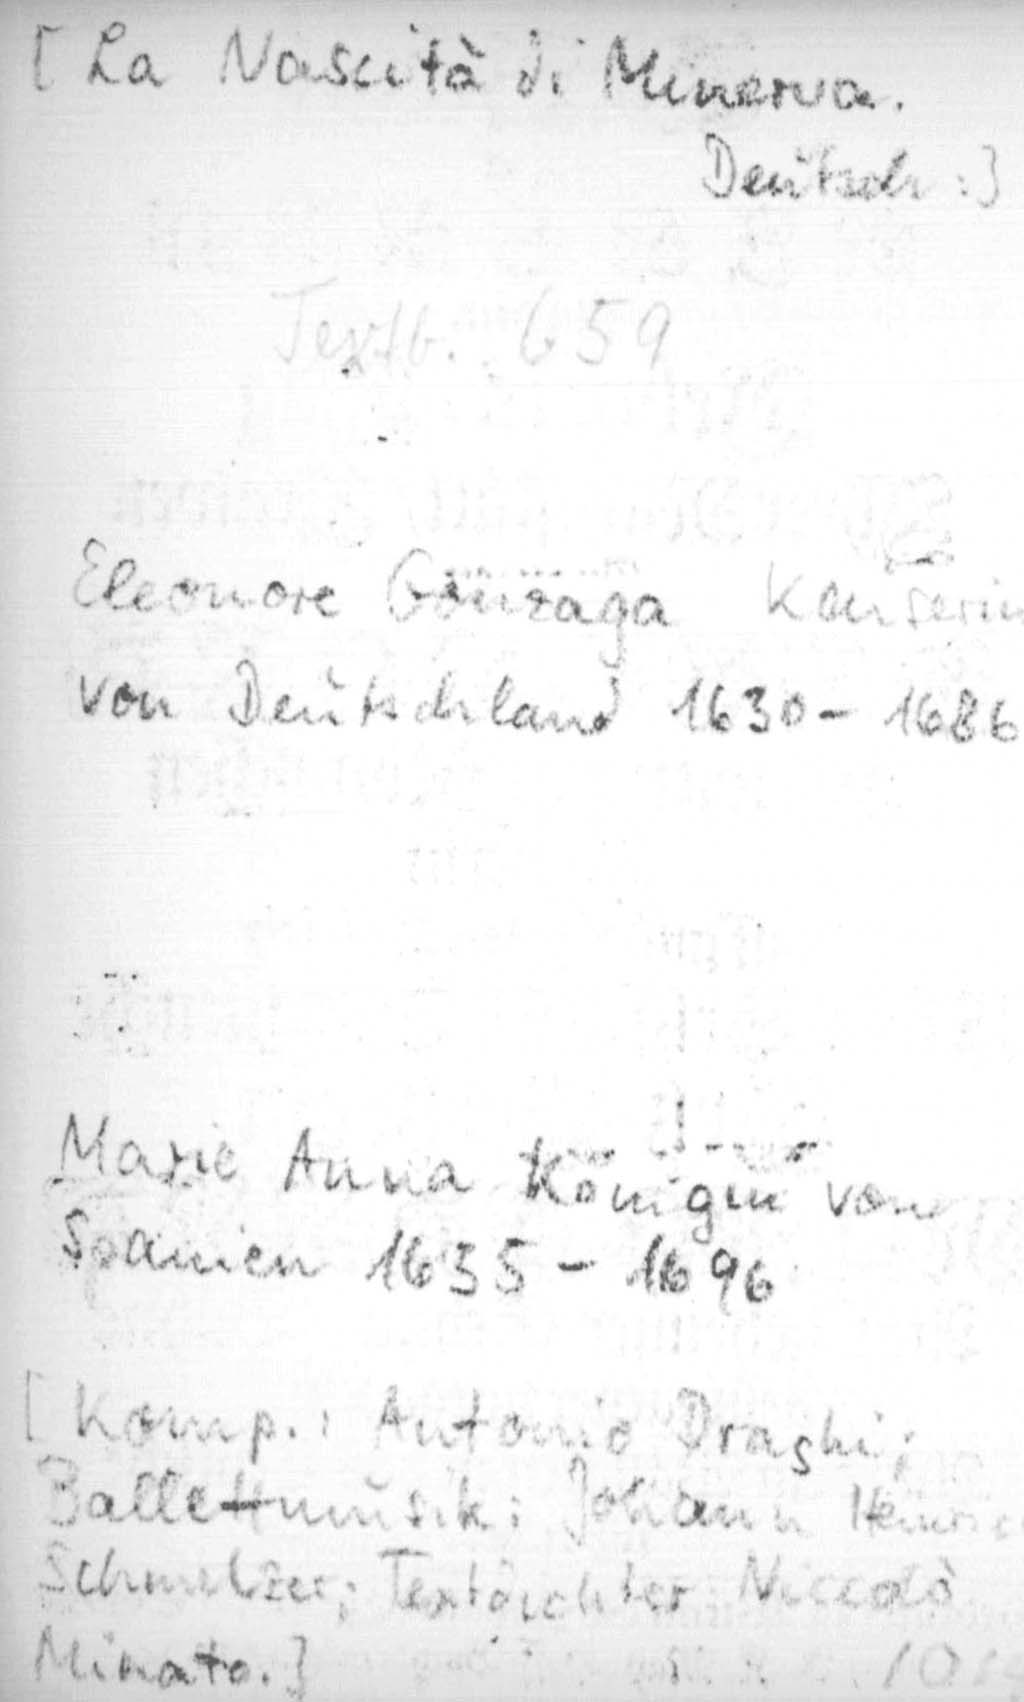 [La Nascità di Minerva.
Deutsch:]
Textb. 659
Eleonore Gonzaga Kaiserin
von Deutschland 1630-1686
Marie Anna Königin von
Spanien 1635-1696
[Komp.: Antonio Draghi;
Ballettmusik: Johann Heinric
Schmelzer; Textdichter Niccolò
Minato.]